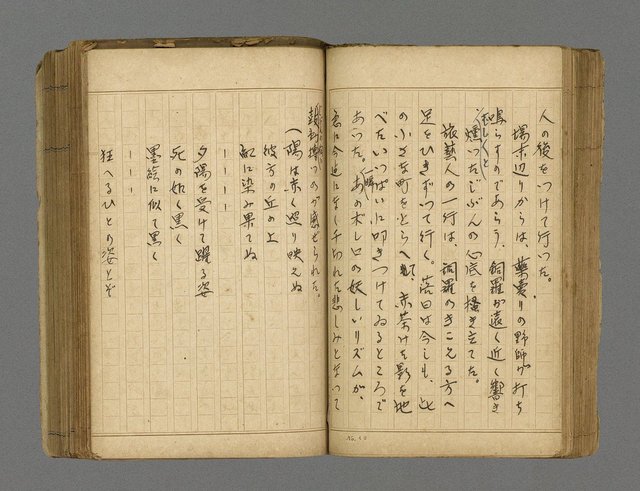 人の後をつけて行つた。
場末辺りからは、薬売りの野師が打ち
鳴らすのであらう、銅羅が遠く近く響き
煙つたじぶんの心底を掻き立てた。
旅藝人の一行は、銅羅のきこえる方へ
足をひきずつて行く。落日は今しも、此
の小さな町をとらへ、赤茶けた影を地
べたいつぱいに叩きつけてゐるところで
あつた。あの木レロの妖しいリズムが、
急に今迄になく千切れた悲しみとなつて
つのが感ぜられた。
(陽は赤く照り映えぬ
彼方の丘の上
虹に染み果てぬ
ーーーー
夕陽を受けて躍る姿
死の如く黒く
墨絵に似て黒く
ーーー
狂へるひとの姿とぞ